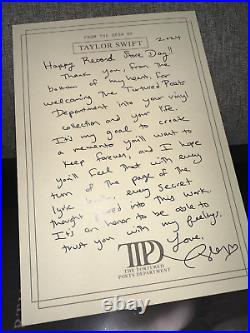 FROM THE DESK OF
TAYLOR SWIFT
2024
Happy Record Store Day!!
Thank you, from the
bottom of my heart, for
welcoming the Tortured Poets
Department into your vinyl
collection and your life.
It's my goal to create
a memento you'll want to
keep forever, and I hope
you'll feel that with every
turn of the page of the
lyric every secret
thought poured into this work.
It's an honor to be able to
trust you with my feelings.
Love,
TTPD
THE TORTURED
POETS DEPARTMENT